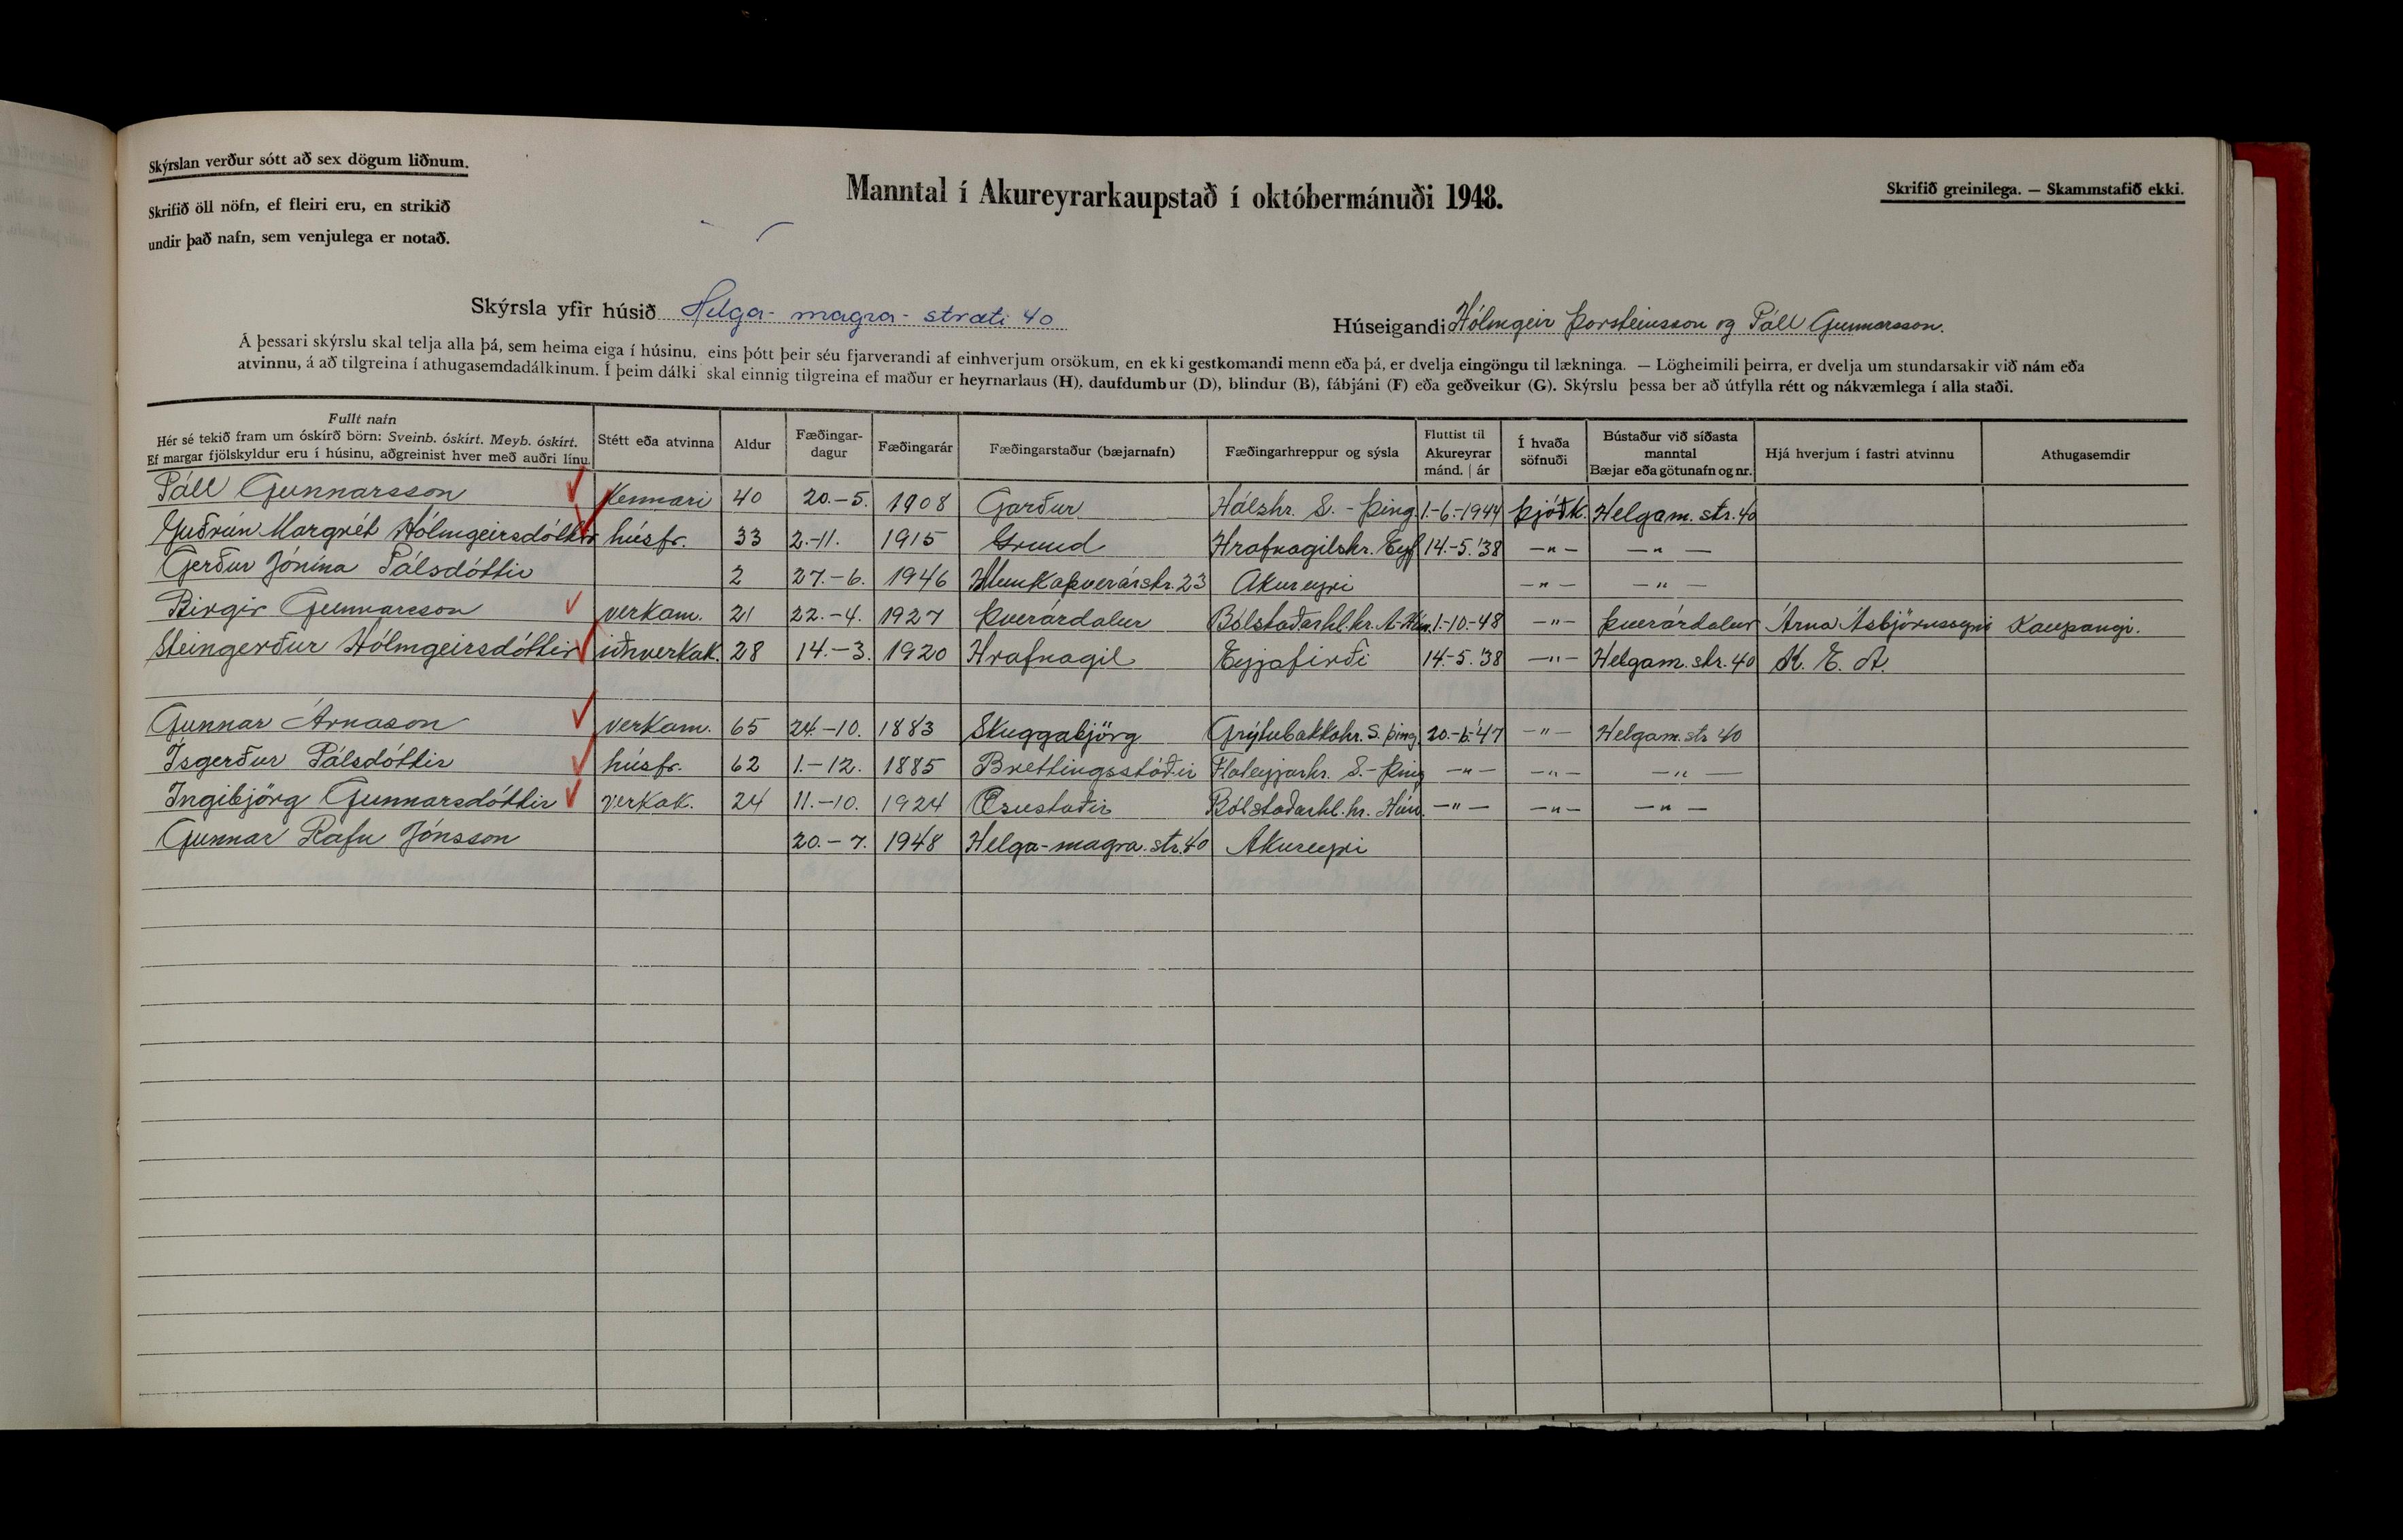 Skýrslan verður sótt að sex dögum liðnum.
Skrifið öll nöfn, ef fleiri eru, en strikið
undir það nafn, sem venjulega er notað.
Manntal í Akureyrarkaupstað í októbermánuði 1948.
Skrifið greinilega. — Skammstafið ekki.
Skýrsla yfir húsið Helga- magra- stræti 40
Húseigandi Hólmgeir Þorsteinsson og Páll Gunnarsson.
Á þessari skýrslu skal telja alla þá, sem heima eiga í húsinu, eins þótt þeir séu fjarverandi af einhverjum orsökum, en ekki gestkomandi menn eða þá, er dvelja eingöngu til lækninga. — Lögheimili þeirra, er dvelja um stundarsakir við nám eða
atvinnu, á að tilgreina í athugasemdadálkinum. Í þeim dálki skal einnig tilgreina ef maður er heyrnarlaus (H), daufdumbur (D), blindur (B), fábjáni (F) eða geðveikur (G). Skýrslu þessa ber að útfylla rétt og nákvæmlega í alla staði.
Fullt nafn
Hér sé tekið fram um óskírð börn: Sveinb. óskírt. Meyb. óskírt.
Ef margar fjölskyldur eru í húsinu, aðgreinist hver með auðri línu.
Stétt eða atvinna
Aldur
Fæðingar-
dagur
Fæðingarár
Fæðingarstaður (bæjarnafn)
Fæðingarhreppur og sýsla
Fluttist til
Akureyrar
mánd. | ár
Í hvaða
söfnuði
Bústaður við síðasta
manntal
Bæjar eða götunafn og nr.
Hjá hverjum í fastri atvinnu
Athugasemdir
Páll Gunnarsson kennari 40 20.-5. 1908 Garður Hálshr. S.-Þing. 1.-6.-1944 þjóðk. Helgam. str. 40
Guðrún Margrét Hólmgeirsdóttir húsfr. 33 2.-11. 1915 Grund Hrafnagilshr. Eyf 14.-5.'38 —"— —"—
Gerður Jónína Pálsdóttir 2 27.-6. 1946 Munkaþverárstr. 23 Akureyri —"— —"—
Birgir Gunnarsson verkam. 21 22.-4. 1927 Þverárdalur Bólstaðarhl.hr. A-Hún. 1.-10.-48 —"— Þverárdalur Árna Ásbjörnssyni Kaupangi.
Steingerður Hólmgeirsdóttir iðnverkak. 28 14.-3. 1920 Hrafnagil Eyjafirði 14.-5.'38 —"— Helgam. str. 40 K. E. A.
Gunnar Árnason verkam. 65 24.-10. 1883 Skuggabjörg Grýtubakkahr. S. þing. 20.-6-'47 —"— Helgam. str 40
Ísgerður Pálsdóttir húsfr. 62 1.-12. 1885 Brettingsstöðir Flateyjarhr. S.-Þing —"— —"— —"—
Ingibjörg Gunnarsdóttir verkak. 24 11.-10. 1924 Æsustaðir Bólstaðarhl.hr. Hún. —"— —"— —"—
Gunnar Rafn Jónsson 20.-7. 1948 Helga-magra. str. 40 Akureyri